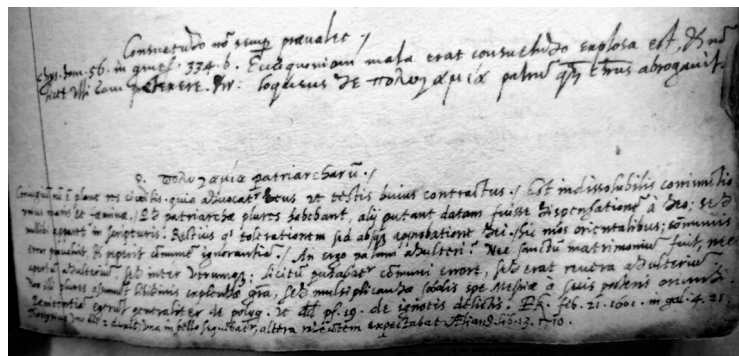 Consuetudo nõ semp prævalet ./
Chrys. hom. 56. in gnes. 334. b. Et quoniam mala erat consuetudo explosa est, & nũ
licet illi eam . loquens de πολυγαμίᾳ patrũ χrus abrogavit.
πολυγαμία patriarcharũ ./
Coniugiũ nõ ẽ plane res civilis. quia advocatr Deus ut testis huius contractus ./ Est indissolubilis coniunctio
unius maris et fæminæ. / Et patriarchæ plures habebant, alij putant datam fuisse dispensationẽ à Deo: sed
nullibi apparet in scripturis. Rectius qd tolerationem sed absq3 approbatione Dei. Sic mos orientalibus; cõmunis
error prævaluit, & peperit cõmunẽ ignorantiã. / An ergo patrũ adulteriũ? Nec sanctũ matrimoniũ fuit, nec
apertũ adulteriũ, sed inter utrumq3. licitũ putabatr cõmuni errore, sed erat revera adulteriũ.
Nõ illi plures libidinis explendæ grã, sed multiplicandæ sobolis spe Messiæ à suis
generaliter de polyg. ut pf. 19. de ignotis delictis. Feb. 21. 1601. in gal. 4. 21.
Dionysius 2 duxit una in bello sequebatr, altera expectabat Ælian. lib. 13. c. 10.